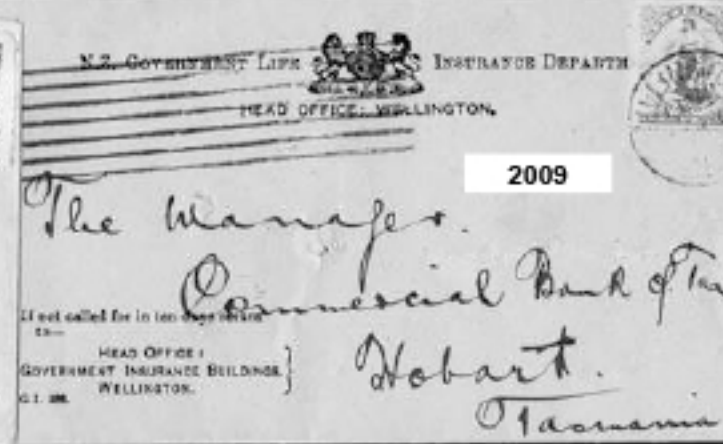 N.Z. GOVERNMENT LIFE INSURANCE DEPARTM
HEAD OFFICE: WELLINGTON.
2009
The Manager.
Commercial Bank of Tas
Hobart.
Tasmania
If not called for in ten days return
to—
HEAD OFFICE:
GOVERNMENT INSURANCE BUILDINGS.
WELLINGTON.
G.I.